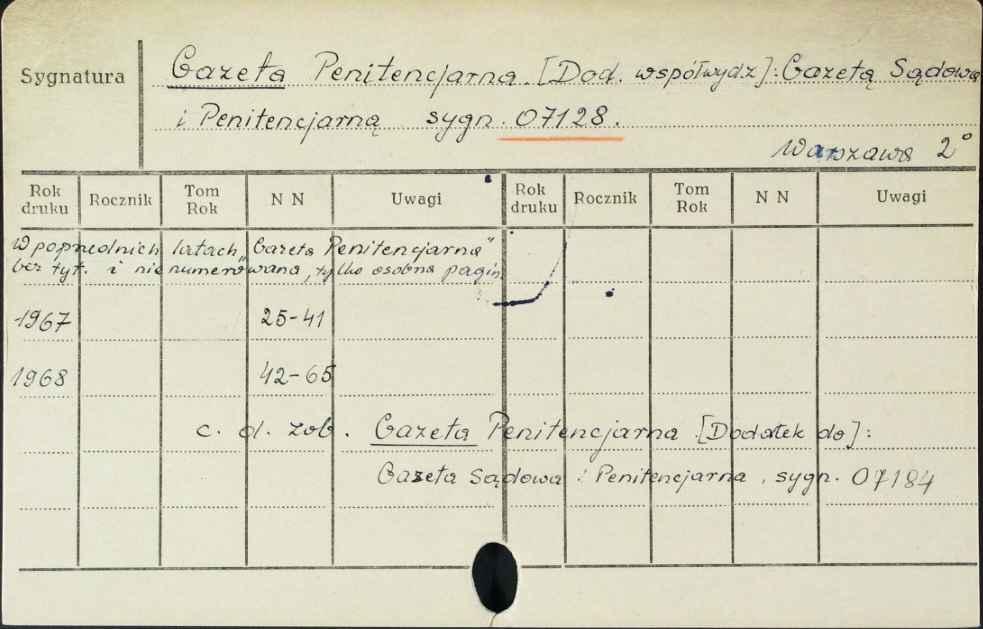 Sygnatura
Gazeta Penitencjarna [Dod. współwydz]: Gazetą Sądową
i Penitencjarną sygn. 07128.
Warszawa 2°
Rok druku Rocznik Tom Rok N N Uwagi Rok druku Rocznik Tom Rok N N Uwagi
W poprzednich latach „Gazeta Penitencjarna"
bez tyt. i nie numerowana, tylko osobna pagin.
1967 25-41
1968 42-65
c. d. zob. Gazeta Penitencjarna [Dodatek do]:
Gazeta Sądowa i Penitencjarna, sygn. 07184